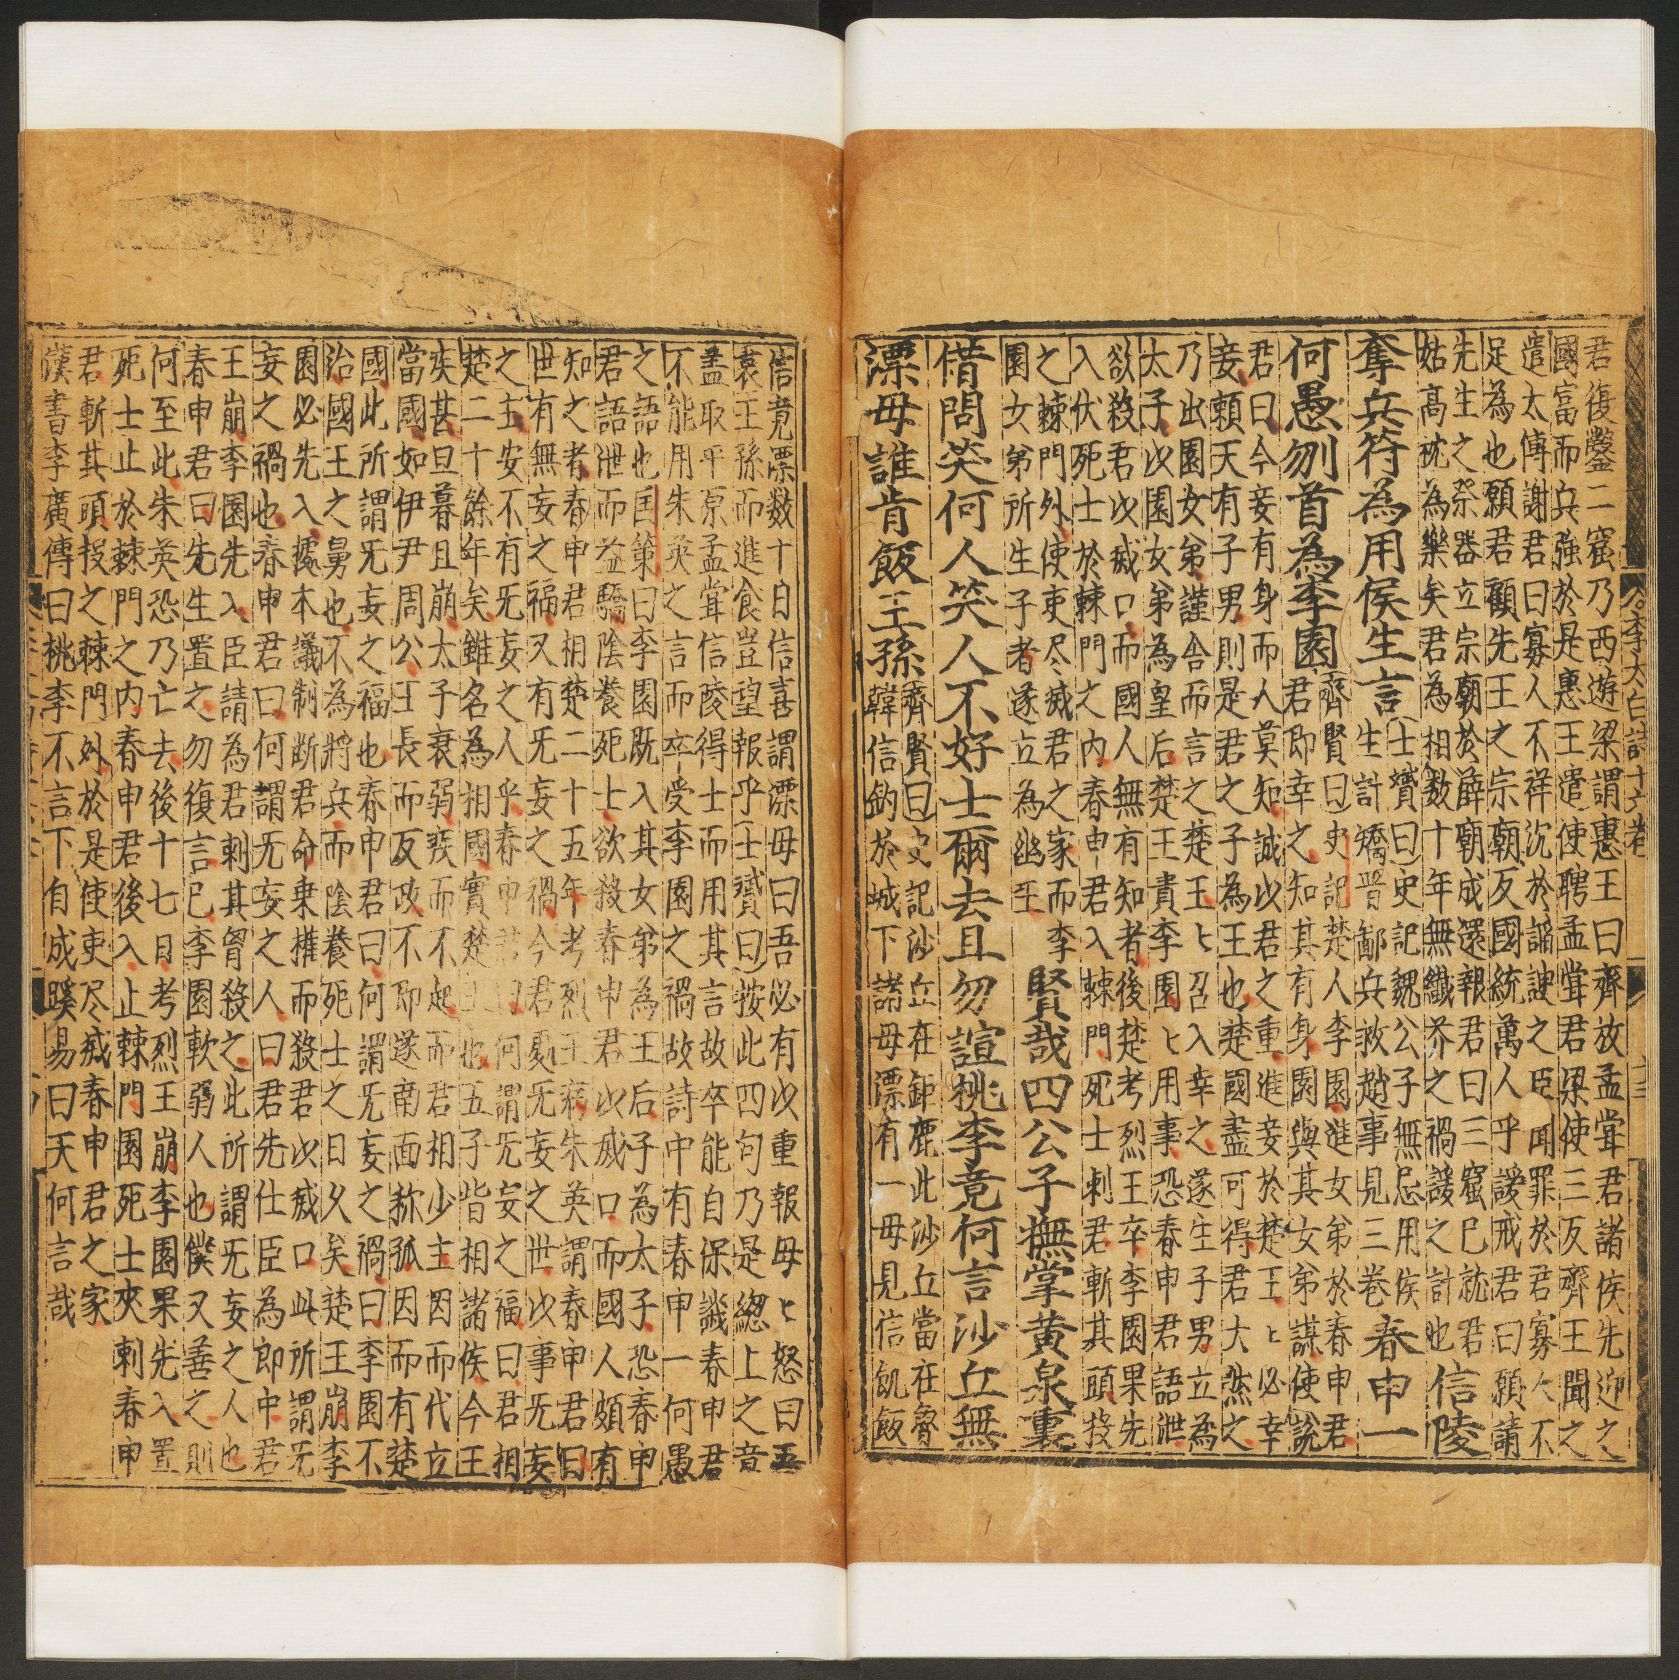 君復鑿二窟乃西遊梁謂惠王曰齊放孟甞君諸侯先迎之
國富而兵強於是惠王遣使聘孟甞君梁使三反齊王聞之
遣太傅謝君曰寡人不祥沉於諂諛之臣開罪於君寡人不
足為也願君顧先王之宗廟反國統萬人乎諼戒君曰願請
先生之祭器立宗廟於薛廟成還報君曰三窟已就君
姑髙枕為樂矣君為相數十年無纎芥之禍諼之計也信陵
奪兵符為用侯生言士贇曰史記魏公子無忌用侯
生計矯晋鄙兵救趙事見三卷春申一
何愚刎首為李園齊賢曰史記楚人李園進女弟於春申君
君即幸之知其有身園與其女弟謀使說
君曰今妾有身而人莫知誠以君之重進妾於楚王ヒ必幸
妾賴天有子男則是君之子為王也楚國盡可得君大然之
乃出園女弟謹舍而言之楚王ヒ召入幸之遂生子男立為
太子以園女弟為皇后楚王貴李園ヒ用事恐春申君語泄
欲殺君以滅口而國人無有知者後楚考烈王卒李園果先
入伏死士於棘門之内春申君入棘門死士刺君斬其頭投
之棘門外使吏尽滅君之家而李
園女弟所生子者遂立為幽王賢哉四公子撫掌黄泉裏
借問笑何人笑人不好士爾去且勿諠桃李竟何言沙丘無
漂母誰肯飯王孫齊賢曰史記沙丘在鉅鹿此沙丘當在魯
韓信釣於城下諸母漂有一母見信飢飯
信竟漂数十日信喜謂漂母曰吾必有以重報母ヒ怒曰吾
哀王孫而進食豈望報乎士贇曰按此四句乃是總上之意
盖取平原孟甞信陵得士而用其言故卒能自保譏春申君
不能用朱英之言而卒受李園之禍故詩中有春申一何愚
之語也国策曰李園既入其女弟為王后子為太子恐春申
君語泄而益驕陰養死士欲殺春申君以滅口而國人頗有
知之者春申君相楚二十五年考烈王病朱英謂春申君曰
世有無妄之福又有无妄之禍今君處无妄之世以事无妄
之主安不有无妄之人乎春申君曰何謂无妄之福曰君相
楚二十餘年矣雖名為相國實楚王也五子皆相諸侯今王
疾甚旦暮且崩太子衰弱疾而不起而君相少主因而代立
當國如伊尹周公王長而反政不即遂南面称孤因而有楚
國此所謂无妄之福也春申君曰何謂无妄之禍曰李園不
治國王之舅也不為將兵而陰養死士之日久矣楚王崩李
園必先入據本議制断君命秉權而殺君以滅口此所謂无
妄之禍也春申君曰何謂无妄之人曰君先仕臣為郎中君
王崩李園先入臣請為君剌其胷殺之此所謂无妄之人也
春申君曰先生置之勿復言已李園軟弱人也僕又善之則
何至此朱英恐乃亡去後十七日考烈王崩李園果先入置
死士止於棘門之内春申君後入止棘門園死士夾刺春申
君斬其頭投之棘門外於是使吏尽滅春申君之家
漢書李廣傳曰桃李不言下自成蹊易曰天何言哉
李太白詩十六卷